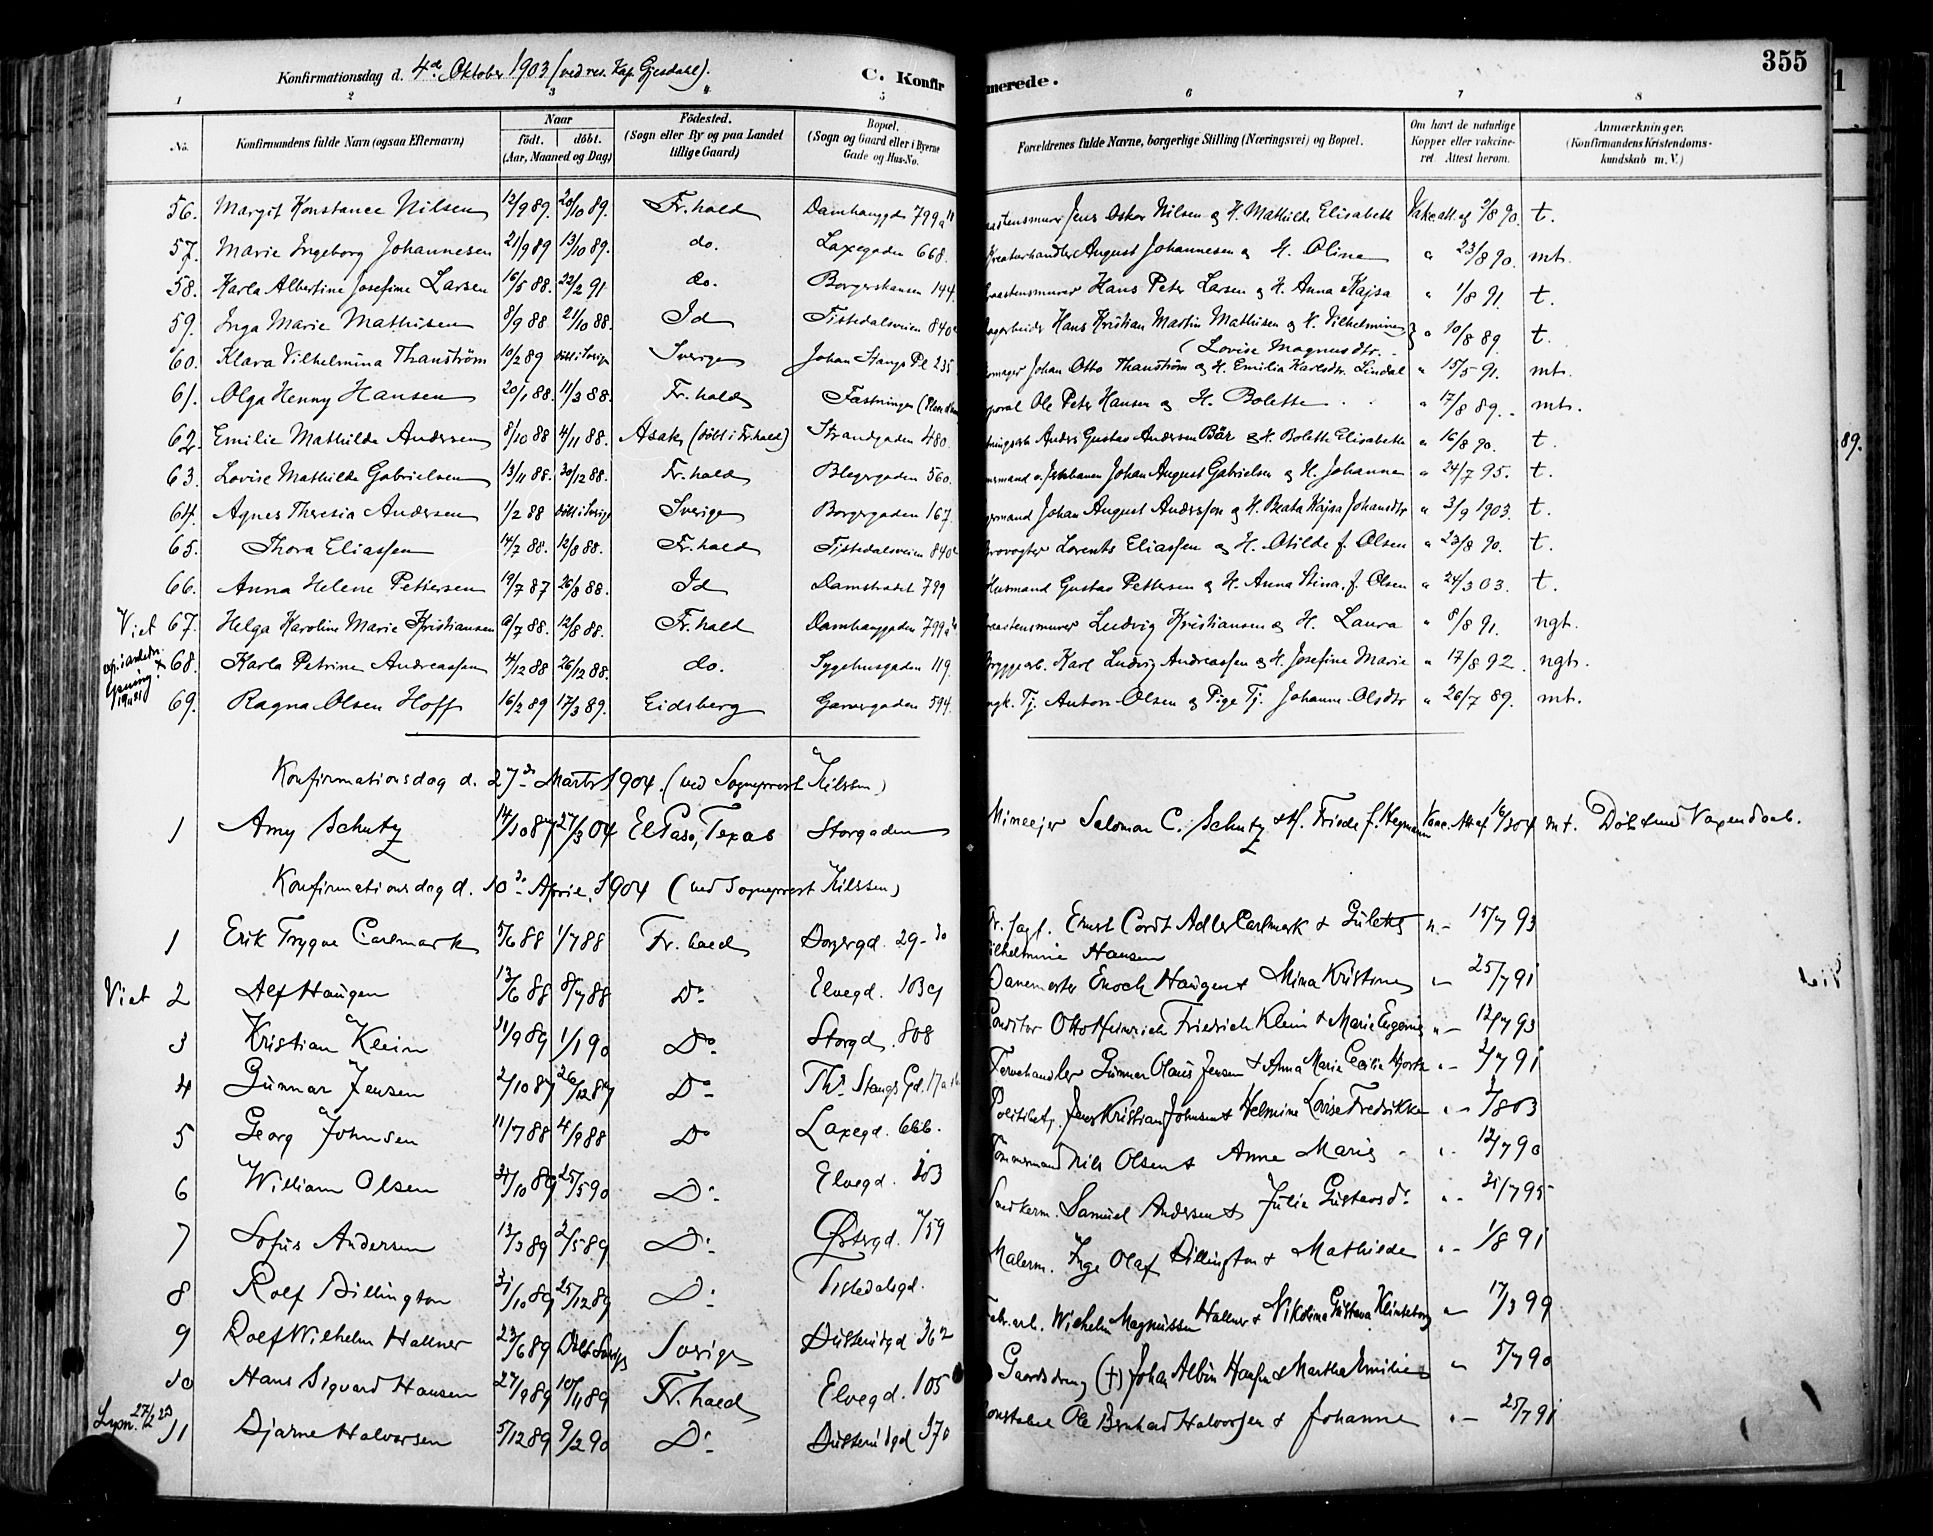 355
Konfirmationsdag d. 4de Oktober 1903 (ved res. Kap. Gjesdahl).
C. Konfirmerede.
1 2 3 5 6 7 8
No. Konfirmandens fulde Navn (ogsaa Efternavn) Naar født. døbt. (Aar, Maaned og Dag) Fødested. (Sogn eller By og paa Landet tillige Gaard) Bopæl. (Sogn og Gaard eller i Byerne Gade og Hus-No. Forældrenes fulde Navne, borgerlige Stilling (Næringsvei) og Bopæl. Om havt de naturlige Kopper eller vakcineret. Attest herom. Anmærkninger. (Konfirmandens Kristendomskundskab m. V.)
56. Margit Konstance Nilsen 12/9 89. 20/10 89. Fr.hald Damhauggdn 799a Jens Oskar Nilsen og H. Mathilde Elisabeth Vakc.att. af 9/8 90. t.
57. Marie Ingeborg Johannesen 21/9 89 13/10 89. do. Laxegaden 668. Kreaturhandler August Johannesen og H. Oline " 23/8 90. mt.
58. Karla Albertine Josefine Larsen 16/5 88. 22/2 91 do. Borgerskansen 144. Hans Peter Larsen og H. Anna Kajsa " 1/8 91. t.
59. Inga Marie Mathisen 8/9 88 21/10 88. Id Tistedalsveien 840 Hans Kristian Martin Mathisen og H. Vilhelmine " 10/8 89. t.
(Lovise Magnusdtr.
60. Klara Vilhelmina Thanström 10/2 89 døbt i Sverige Sverige Johan Stangs Pl 235 Johan Otto Thanström og H. Emilia Karlsdtr. Lindal " 15/5 91. mt.
61. Olga Henny Hansen 20/1 88. 11/3 88. Fr.hald Fæstningen Ole Peter Hansen og H. Bolette " 17/8 89. mt.
62. Emilie Mathilde Andersen 8/10 88 4/11 88. Asak (døbt i Fr.hald) Strandgaden 480. Anders Gustav Andersen Bär og H. Bolette Elisabeth " 16/8 90. t.
63. Lovise Mathilde Gabrielsen 13/11 88. 30/12 88. Fr.hald Blegergaden 560. Johan August Gabrielsen og H. Johanne " 24/7 95. t.
64. Agnes Theresia Andersen 1/2 88 døbt i Sverige Sverige Borgergaden 167. Johan August Anderssson og H. Beata Kajsa Johansdtr " 3/9 1903. t.
65. Thora Eliassen 14/7 88. 12/8 88. Fr.hald Tistedalsveien 840 Brovogter Lorents Eliassen og H. Otilde f. Olsen " 23/8 90. t.
66. Anna Helene Pettersen 19/7 87 26/8 88. Id Damstrædet 799 Husmand Gustav Pettersen og H. Anna Stina f. Olsen " 24/3 03. t.
Viet 67. Helga Karoline Marie Kristiansen 9/7 88. 12/8 88. Fr.hald Damhauggaden 799a Ludvig Kristiansen og H. Laura " 8/8 91. ngt.
68. Karla Petrine Andreassen 4/12 88 26/12 88. do. Sygehusgaden 119. Bryggearb. Karl Ludvig Andreassen og H. Josefine Marie " 17/8 92. ngt.
69. Ragna Olsen Hoff 16/2 89 17/3 89. Eidsberg Garvergaden 594. Ungk. Tj. Anton Olsen og Pige Tj. Johanne Olsdtr " 26/7 89. mt.
Konfirmationsdag d. 27de Marts 1904. (ved Sogneprest Nilssen)
1 Amy Schutz 14/10 87 27/3 04 El Paso, Texas Storgaden Mineejer Salomon C. Schutz & H. Frieda f. Hegmann Vacc. Att af 16/3 04 mt. Døbt med Voxendaab.
Konfirmationsdag d. 10de April 1904 (ved Sogneprest Nilssen)
1 Erik Trygve Carlmark 5/6 88 1/7 88 Fr.hald Borgergd. 29-30 Ernst Cordt Adler Carlmark & Gülette " - 15/7 93
Vilhelmine Hansen
Viet 2 Alf Haugen 13/6 88 8/7 88 Do Elvegd. 103 Banemester Enoch Haugen & Mina Kristine " - 25/7 91
3 Kristian Klein 11/9 89 1/1 90 Do Storgd. 808 Conditor Otto Heinrich Friedrich Klein & Marie Eugenie " - 12/7 93
4 Gunnar Jensen 2/10 87 26/12 87 Do Ths. Stangs Gd. 17a Farvehandler Gunnar Olaus Jensen & Anna Marie Cecilie Hjorth " - 2/7 91
5 Georg Johnsen 11/7 88 4/9 88 Do Laxegd. 666. Politibetj. Jens Kristian Johnsen & Helmine Lovise Fredrikke " - 3/8 03
6 William Olsen 31/10 89 25/5 90 Do Elvegd. 103 Tømmermand Nils Olsen & Anne Marie " - 12/7 90
7 Sofus Andersen 13/3 89 2/5 89 Do Østergd. 759 Snedkerm. Samuel Andersen & Julia Gustavsdr " - 31/7 95
8 Rolf Dillington 31/10 89 25/12 89 Do Tistedalsgd. Malerm. Inge Olaf Dillington & Mathilde " - 1/8 91
9 Rolf Wilhelm Hallner 23/6 89 Døbt Sverige Sverige 362 Fabr.arb. Wilhelm Magnussen Hallner & Nikolina Gustava Klinteborg " 17/3 99
10 Hans Sigvard Hansen 27/9 89 10/11 89 Fr.hald Elvegd. 105 Gaardsdreng (+) Johan Albin Hansen & Martha Emilie " 5/7 90
11 Bjarne Halvorsen 5/12 89 9/2 90 Do 370 Konstabel Ole Bernhard Halvorsen & Johanne " - 25/7 91
89.